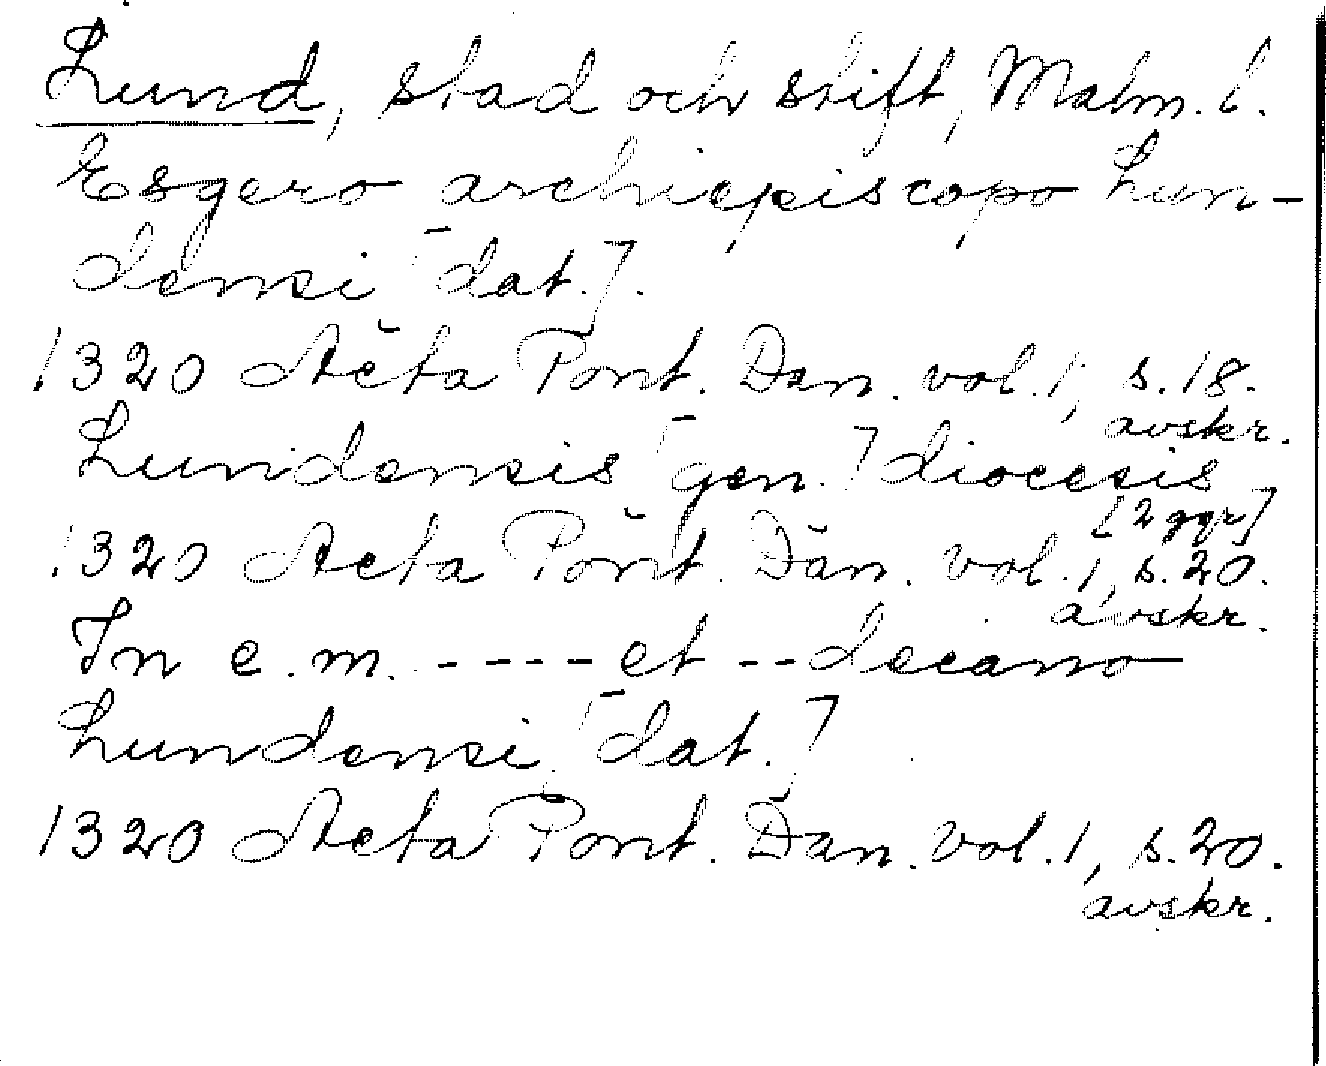 Lund, stad och stift, Malm. l.
Esgero archiepiscopo Lun-
densi [dat.].
1320 Acta Pont. Dan. vol. 1, s. 18.
avskr.
Lundensis [gen.] diocesis
[2 ggr]
1320 Acta Pont. Dan. vol. 1, s. 20.
avskr.
In e. m. ---- et -- decano
Lundensi [dat.]
1320 Acta Pont. Dan. vol. 1, s. 20.
avskr.